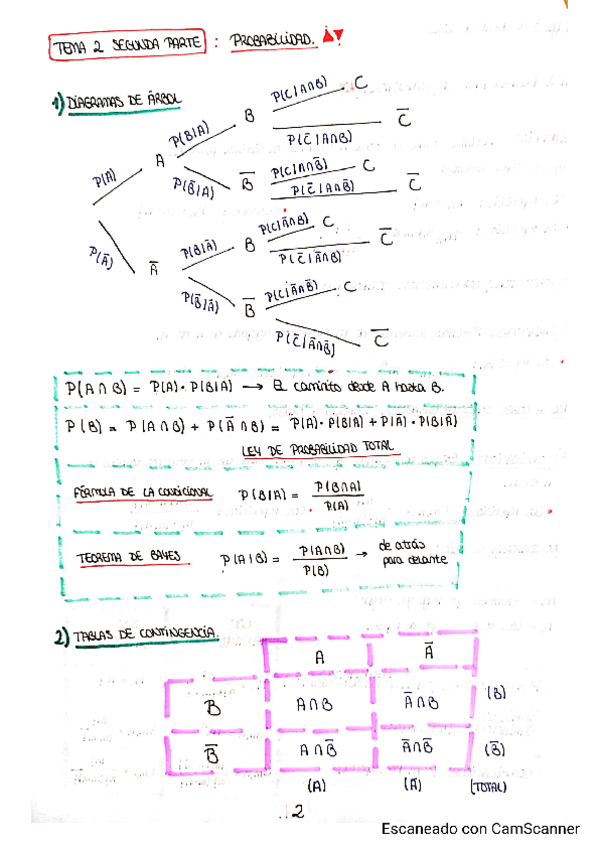 TEMA 2 SEGUNDA PARTE : PROBABILIDAD.
1) DIAGRAMAS DE ÁRBOL
P(A)
P(Ā)
A
Ā
P(B|A)
P(B̄|A)
P(B|Ā)
P(B̄|Ā)
B
B̄
B
B̄
P(C|A∩B) C
P(C̄|A∩B) C̄
P(C|A∩B̄) C
P(C̄|A∩B̄) C̄
P(C|Ā∩B) C
P(C̄|Ā∩B) C̄
P(C|Ā∩B̄) C
P(C̄|Ā∩B̄) C̄
P(A∩B) = P(A)· P(B|A) → EL caminito desde A hasta B.
P(B) = P(A∩B) + P(Ā∩B) = P(A)· P(B|A) + P(Ā)· P(B|Ā)
LEY DE PROBABILIDAD TOTAL
FÓRMULA DE LA CONDICIONAL P(B|A) = P(B∩A) / P(A)
TEOREMA DE BAYES P(A|B) = P(A∩B) / P(B) → de atrás
para delante
2) TABLAS DE CONTINGENCIA.
A Ā
B A∩B Ā∩B (B)
B̄ A∩B̄ Ā∩B̄ (B̄)
(A) (Ā) (TOTAL)
2
Escaneado con CamScanner